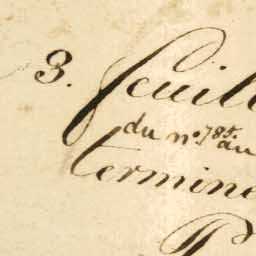 3. feuill
du n° 785. au
termine
P